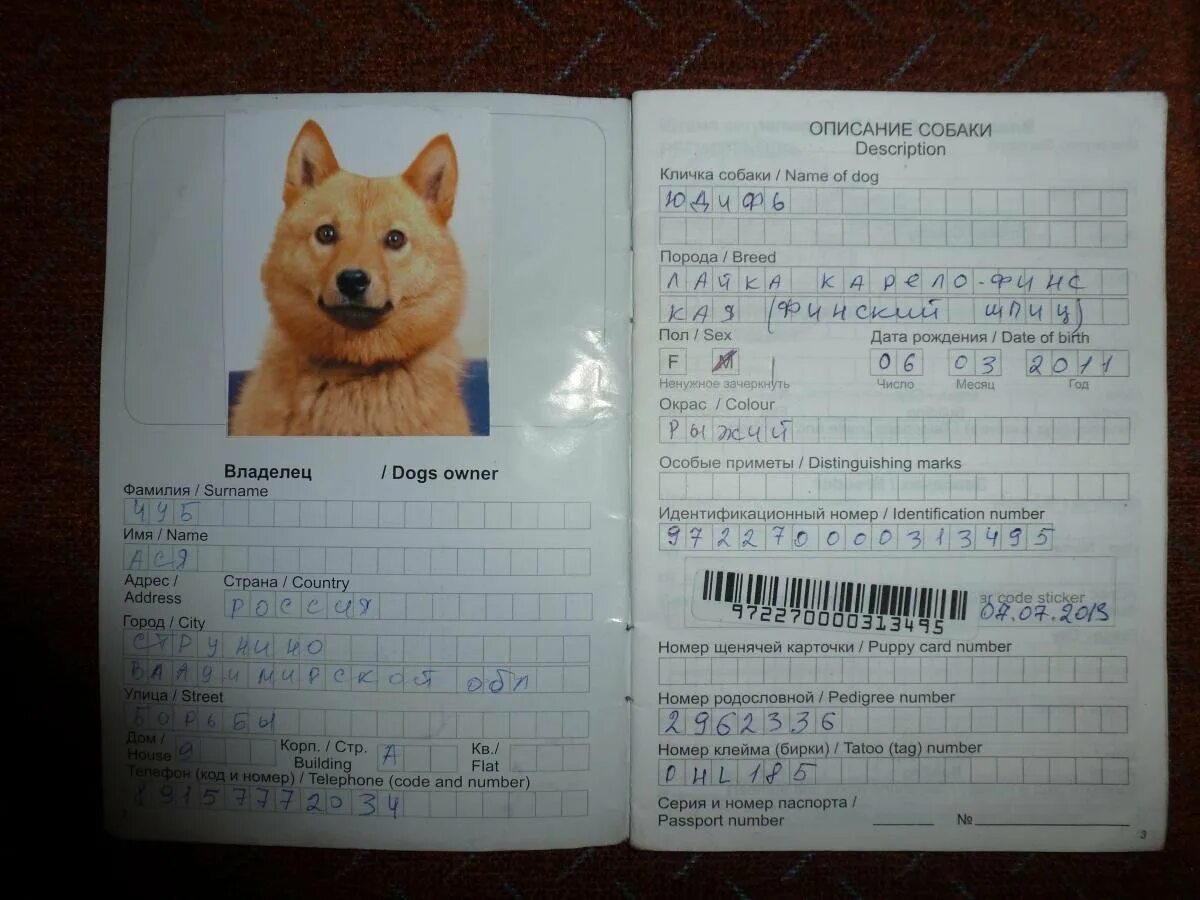 Владелец / Dogs owner
Фамилия / Surname
ЧУБ
Имя / Name
АСЯ
Адрес / Address
Страна / Country
РОССИЯ
Город / City
СТРУНИНО
ВЛАДИМИРСКОЙ ОБЛ
Улица / Street
БОРЬБЫ
Дом / House 9 Корп. / Стр. Building А Кв. / Flat
Телефон (код и номер) / Telephone (code and number)
89157772034
ОПИСАНИЕ СОБАКИ
Description
Кличка собаки / Name of dog
ЮДИФЬ
Порода / Breed
ЛАЙКА КАРЕЛО-ФИНС
КАЯ (ФИНСКИЙ ШПИЦ)
Пол / Sex
Дата рождения / Date of birth
F M 06 03 2011
Ненужное зачеркнуть Число Месяц Год
Окрас / Colour
РЫЖИЙ
Особые приметы / Distinguishing marks
Идентификационный номер / Identification number
972270000313495
ar code sticker
972270000313495
07.07.2013
Номер щенячей карточки / Puppy card number
Номер родословной / Pedigree number
2962336
Номер клейма (бирки) / Tatoo (tag) number
OHL185
Серия и номер паспорта /
Passport number № 
3